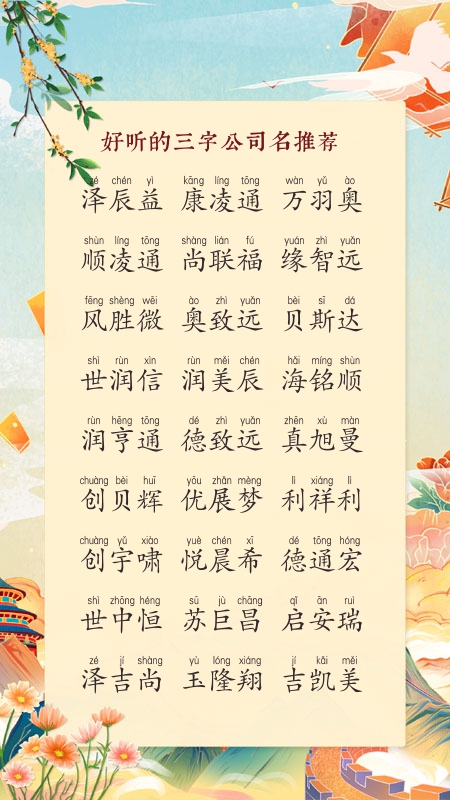 好听的三字公司名推荐
zé chén yì kāng líng tōng wàn yǔ ào
泽辰益 康凌通 万羽奥
shùn líng tōng shàng lián fú yuán zhì yuǎn
顺凌通 尚联福 缘智远
fēng shèng wēi ào zhì yuǎn bèi sī dá
风胜微 奥致远 贝斯达
shì rùn xìn rùn měi chén hǎi míng shùn
世润信 润美辰 海铭顺
rùn hēng tōng dé zhì yuǎn zhēn xù màn
润亨通 德致远 真旭曼
chuàng bèi huī yōu zhǎn mèng lì xiáng lì
创贝辉 优展梦 利祥利
chuàng yǔ xiào yuè chén xī dé tōng hóng
创宇啸 悦晨希 德通宏
shì zhōng héng sū jù chāng qǐ ān ruì
世中恒 苏巨昌 启安瑞
zé jí shàng yù lóng xiáng jí kǎi měi
泽吉尚 玉隆翔 吉凯美